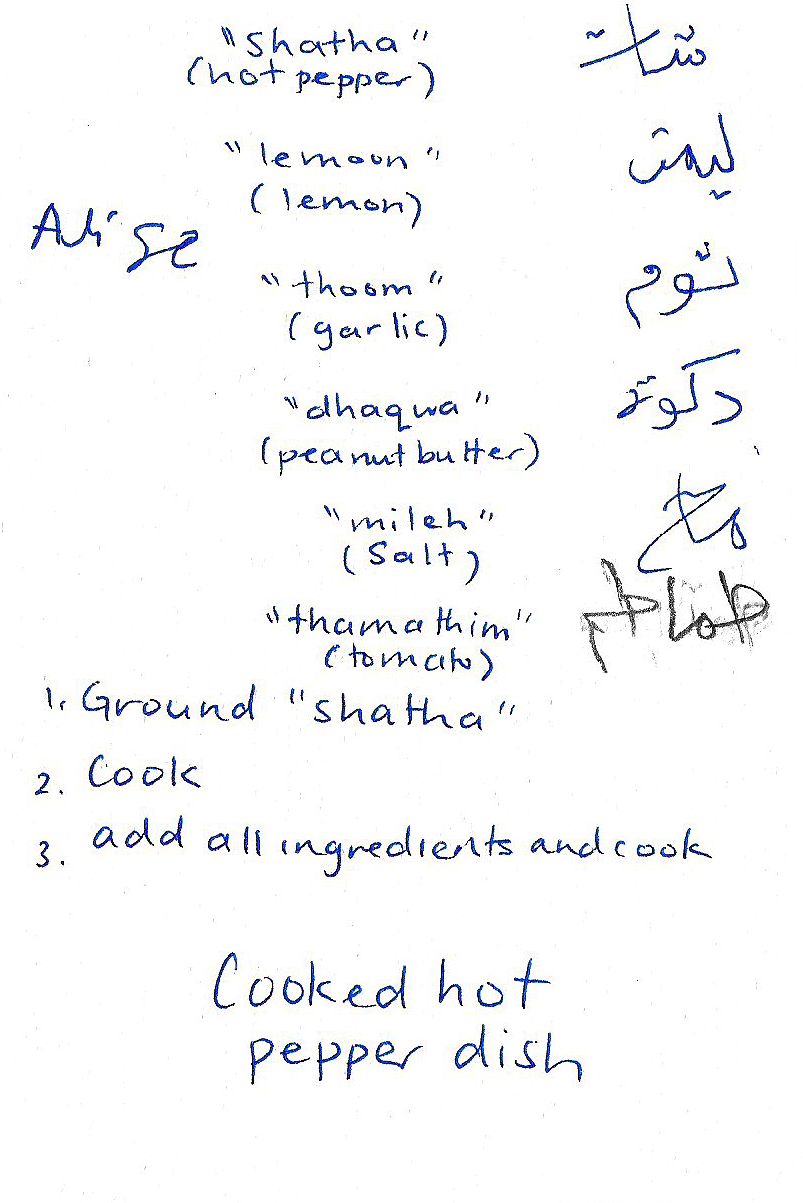 "shatha" شات
(hot pepper)
"lemoon"
(lemon)
Ali
"thoom" توم
(garlic)
"dhaqwa" دكوة
(peanut butter)
"mileh" ملح
(Salt)
"thamathim" طماطم
(tomato)
1. Ground "shatha"
2. Cook
3. add all ingredients and cook
Cooked hot
pepper dish